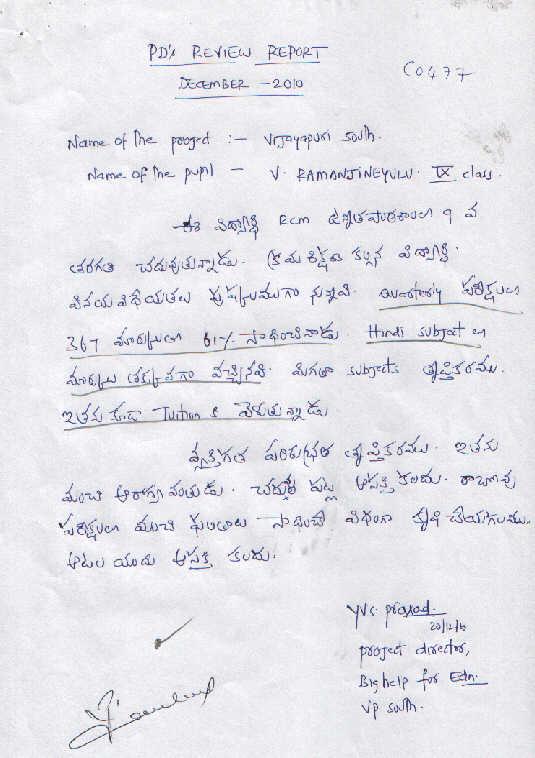 PD's REVIEW REPORT
DECEMBER - 2010
C0477
Name of the project :- Vijayapuri South.
Name of the pupil - V. RAMANJINEYULU. IX class.
ఈ విద్యార్థి RCM ఉన్నతపాఠశాలలో 9 వ
తరగతి చదువుతున్నాడు. క్రమశిక్షణ కల్గిన విద్యార్థి.
వినయవిధేయతలు పుష్కలముగా వున్నవి. Quarterly పరీక్షలలో
367 మార్కులతో 61% సాధించినాడు Hindi subject లో
మార్కులు తక్కువగా వచ్చినవి. మిగతా subjects తృప్తికరము.
ఇతను కూడా Tuition కి వెళుతున్నాడు
వ్యక్తిగత పరిశుభ్రత తృప్తికరము. ఇతను
మంచి ఆరోగ్యవంతుడు. చదువు పట్ల ఆసక్తి కలదు. రాబోవు
పరీక్షలలో మంచి ఫలితాలు సాధించే విధంగా కృషి చేయగలము.
ఆటల యందు ఆసక్తి కలదు.
YVS. prasad.
20/12/10
project director,
Big help for Edn.
VP south.